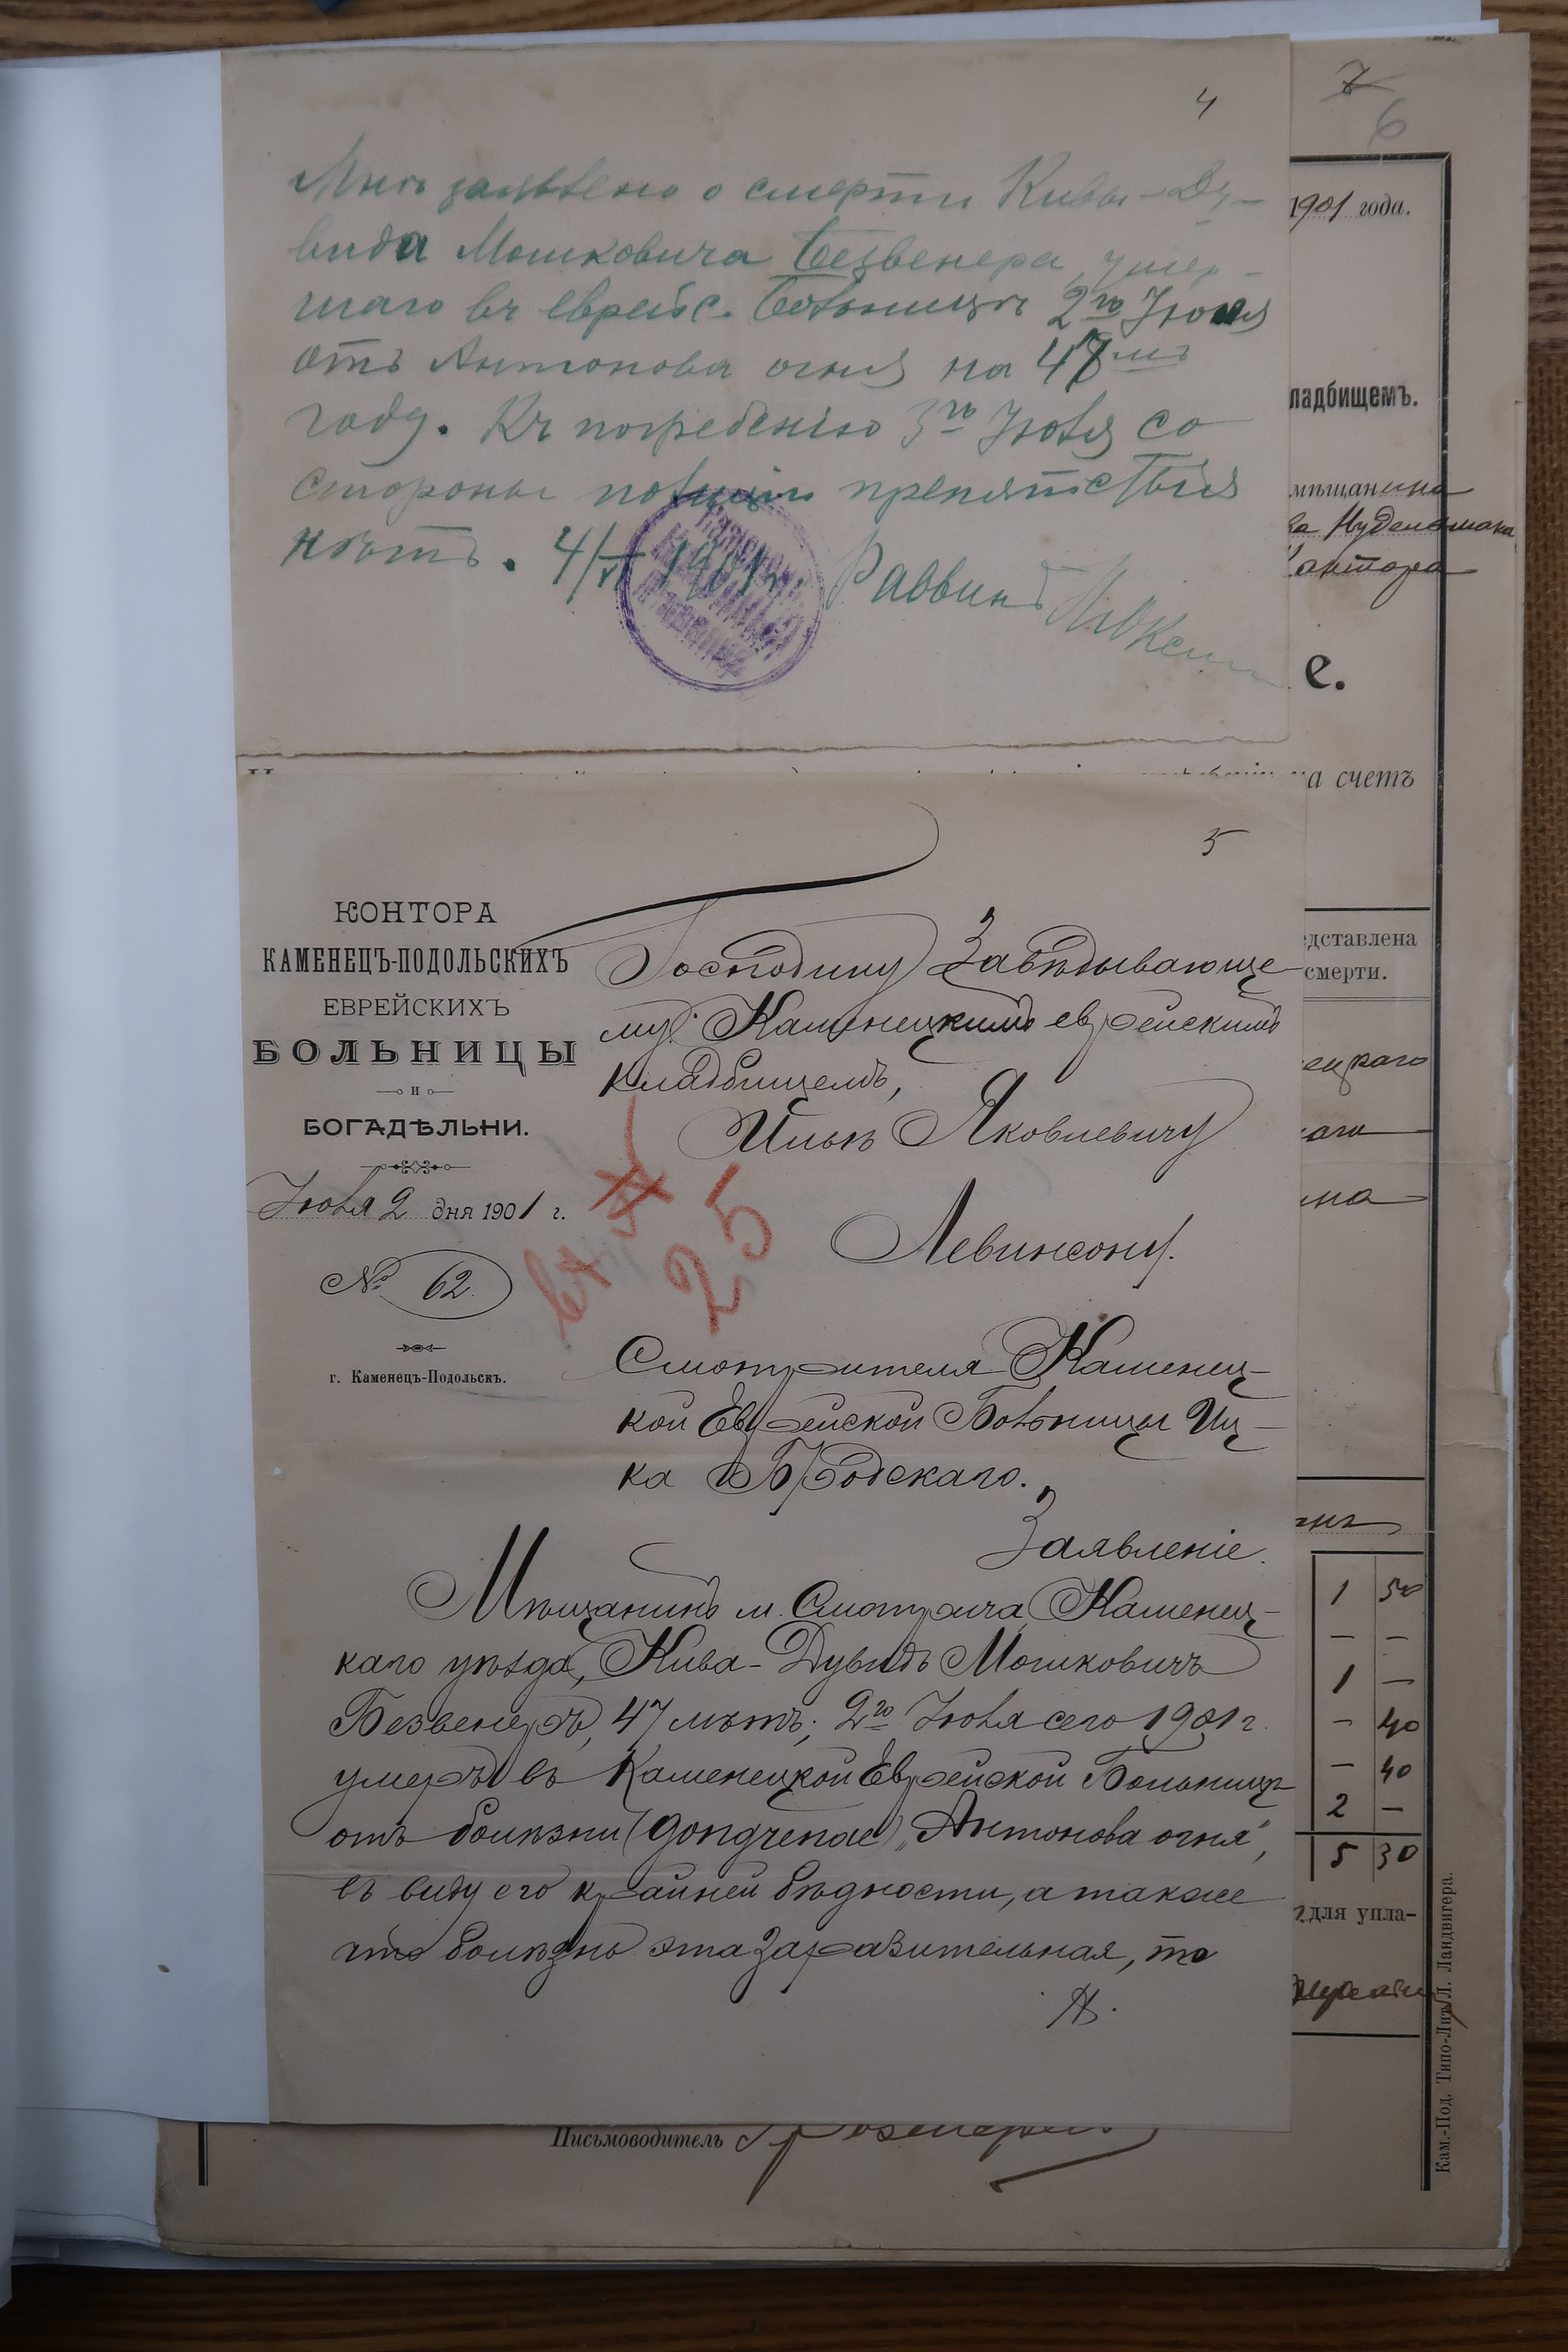 4
Мнѣ заявлено о смерти Кивы-Ду-
вида Мошковича Безвенера, умер-
шаго въ еврейс. больницѣ 2го Іюля
отъ Антонова огня на 47мъ
году. Къ погребенію 3го Іюля со
стороны полиціи препятствія
нѣтъ. 1901 г. Раввинъ
5
КОНТОРА
КАМЕНЕЦЪ-ПОДОЛЬСКИХЪ
ЕВРЕЙСКИХЪ
БОЛЬНИЦЫ
и
БОГАДѢЛЬНИ.
Іюля 2 дня 1901 г.
№ 62
г. Каменецъ-Подольскъ.
Господину Завѣдывающе
му Каменецкимъ еврейскимъ
кладбищемъ,
Ильѣ Яковлевичу
Левинсону.
25
Смотрителя Каменец-
кой Еврейской Больницы Иц-
ка Бродскаго.
Заявленіе.
Мѣщанинъ м. Смотрича, Каменец-
каго уѣзда, Кива-Дувидъ Мошковичъ
Безвенеръ, 47 лѣтъ; 2го Іюля сего 1901 г.
умеръ въ Каменецкой Еврейской Больницѣ
отъ болѣзни (gangrenae) „Антонова огня",
въ виду его крайней бѣдности, а также
что болѣзнь эта заразительная, то
7
6
1901 года.
ладбищемъ.
мѣщанина
е.
а счетъ
едставлена
смерти.
1 50
— —
1 —
— 40
— 40
2 —
5 30
для упла-
Письмоводитель
Кам.-Под. Типо-Лит. Л. Ландвигера.